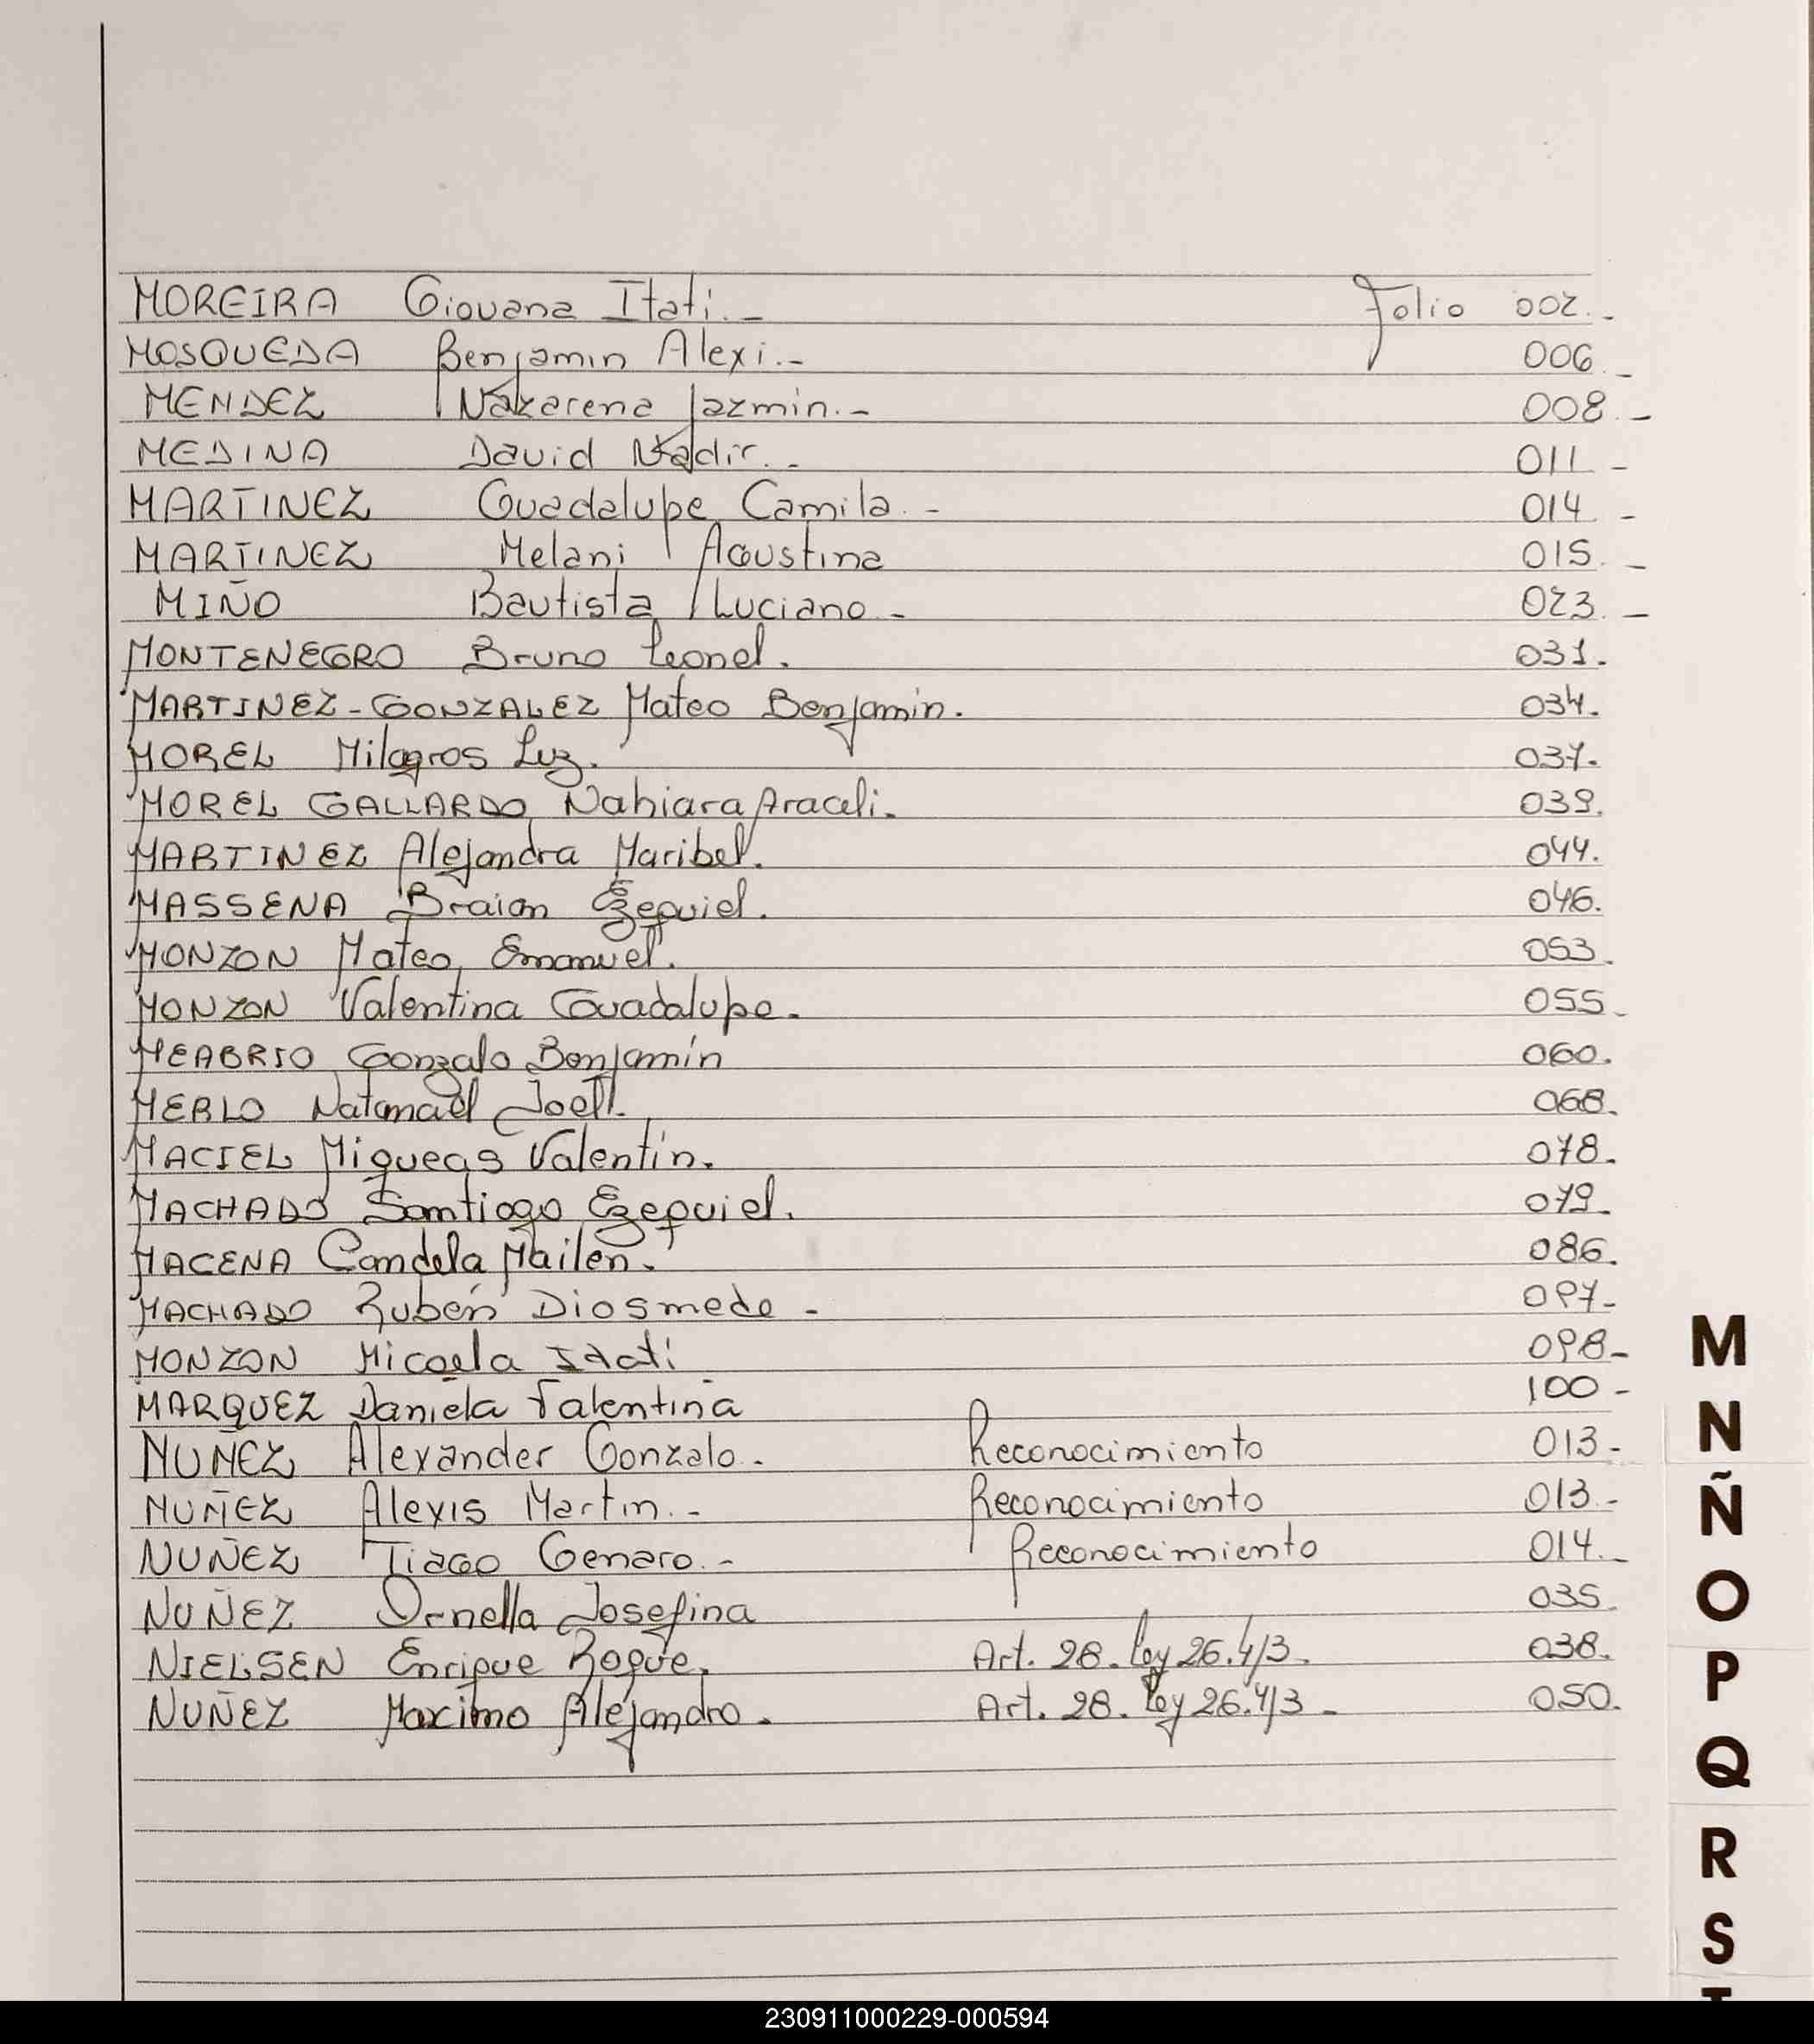 MOREIRA Giovana Itati.- Folio 002.-
MOSQUEDA Benjamin Alexi.- 006.-
MENDEZ Nazarena Jazmin.- 008.-
MEDINA David Nadir.- 011-
MARTINEZ Guadalupe Camila.- 014-
MARTINEZ Melani Agustina 015.-
MIÑO Bautista Luciano- 023.-
MONTENEGRO Bruno Leonel. 031.
MARTINEZ-GONZALEZ Mateo Benjamin. 034.
MOREL Milagros Luz. 037.
MOREL GALLARDO Nahiara Araceli. 039.
MARTINEZ Alejandra Maribel. 044.
MASSENA Braian Ezequiel. 046.
MONZON Mateo Emanuel. 053.
MONZON Valentina Guadalupe. 055.
MEABRIO Gonzalo Benjamín 060.
MERLO Natanaël Joel. 068.
MACIEL Miqueas Valentín. 078.
MACHADO Santiago Ezequiel. 079.
MACENA Candela Mailen. 086.
MACHADO Rubén Diosmede - 097-
MONZON Micaela Itatí 098-
MARQUEZ Daniela Valentina 100-
NUÑEZ Alexander Gonzalo. Reconocimiento 013-
NUÑEZ Alexis Martin.- Reconocimiento 013-
NUÑEZ Tiago Genaro.- Reconocimiento 014.-
NUÑEZ Ornella Josefina 035.
NIELSEN Enrique Roque. Art. 28. Ley 26.413. 038.
NUÑEZ Maximo Alejandro. Art. 28. Ley 26.413- 050.
M
N
Ñ
O
P
Q
R
S
230911000229-000594